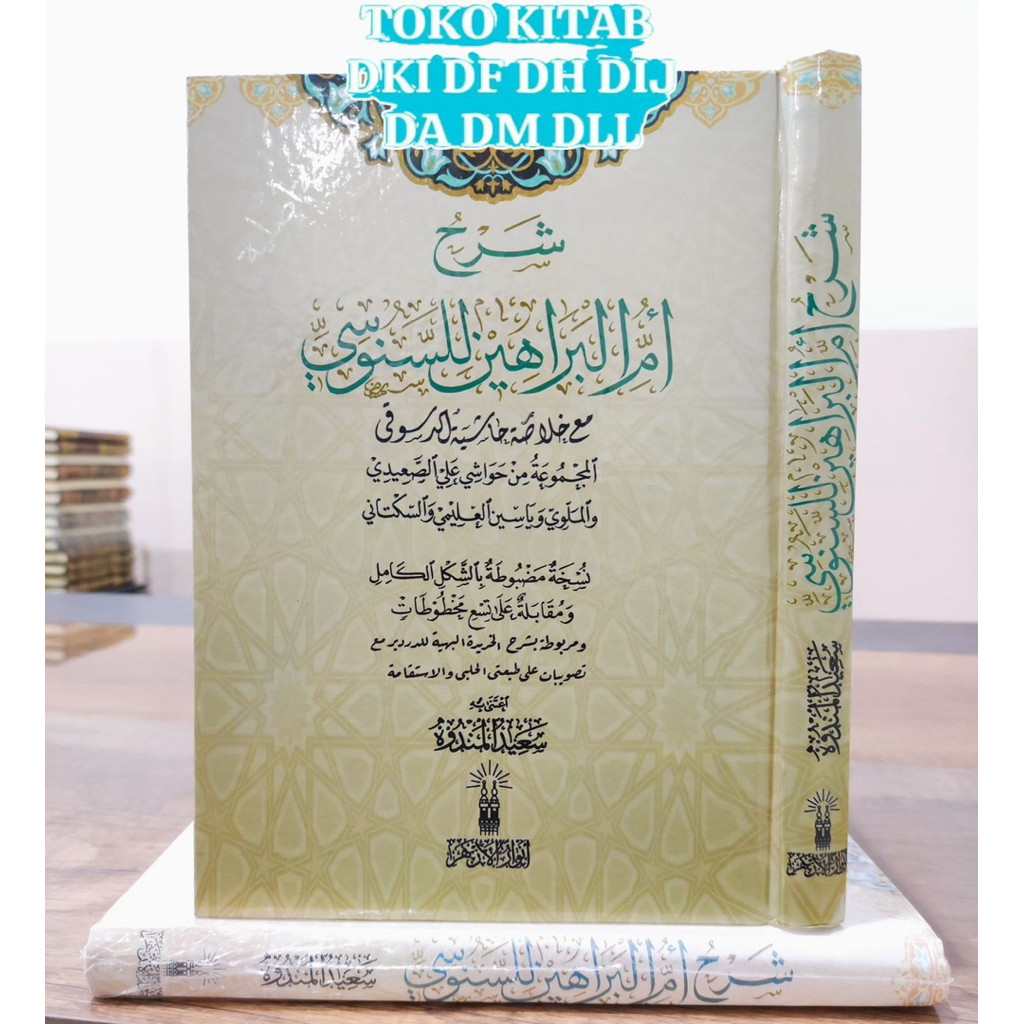 TOKO KITAB
DKI DF DH DIJ
DA DM DLL
شَرْحُ
أُمِّ الْبَرَاهِيْنِ لِلسَّنُوسِيِّ
مع خلاصة حاشية الدسوقي
الْمَجْمُوعَةُ مِنْ حَوَاشِي عَلِيِّ الصَّعِيدِي
وَالْمَلَّوِي وَيَاسِين الْعُلَيْمِي وَالسَّكْتَانِي
نُسْخَةٌ مَضْبُوطَةٌ بِالشَّكْلِ الْكَامِلِ
وَمُقَابَلَةٌ عَلَى تِسْعِ مَخْطُوطَاتٍ
ومربوطة بشرح الخريدة البهية للدردير مع
تصويبات على طبعتي الحلبي والاستقامة
اعْتَنَى بِهِ
سَعِيْد الْمَنْدُوْه
أنوار الأزهر
شَرْحُ أُمِّ الْبَرَاهِيْنِ لِلسَّنُوسِيِّ
سَعِيْد الْمَنْدُوْه
أنوار الأزهر
شَرْحُ أُمِّ الْبَرَاهِيْنِ لِلسَّنُوسِيِّ
سَعِيْد الْمَنْدُوْه
أنوار الأزهر